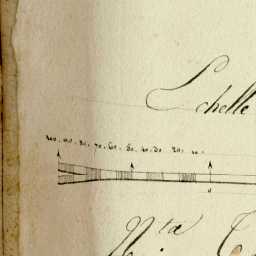 Echelle
100. 90. 80. 70. 60. 50. 40. 30. 20. 10.
0
N.ta